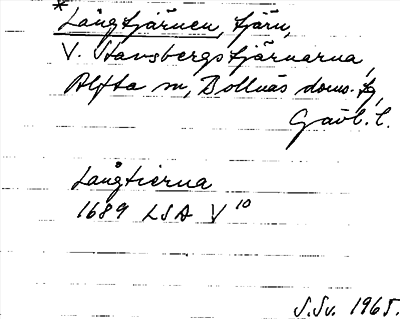 * Långtjärnen, tjärn,
V. Stavsbergstjärnarna,
Alfta sn, Bollnäs doms. tg,
Gävl. l.
Långtierna
1689 LSA V 10
S.Sv. 1965.